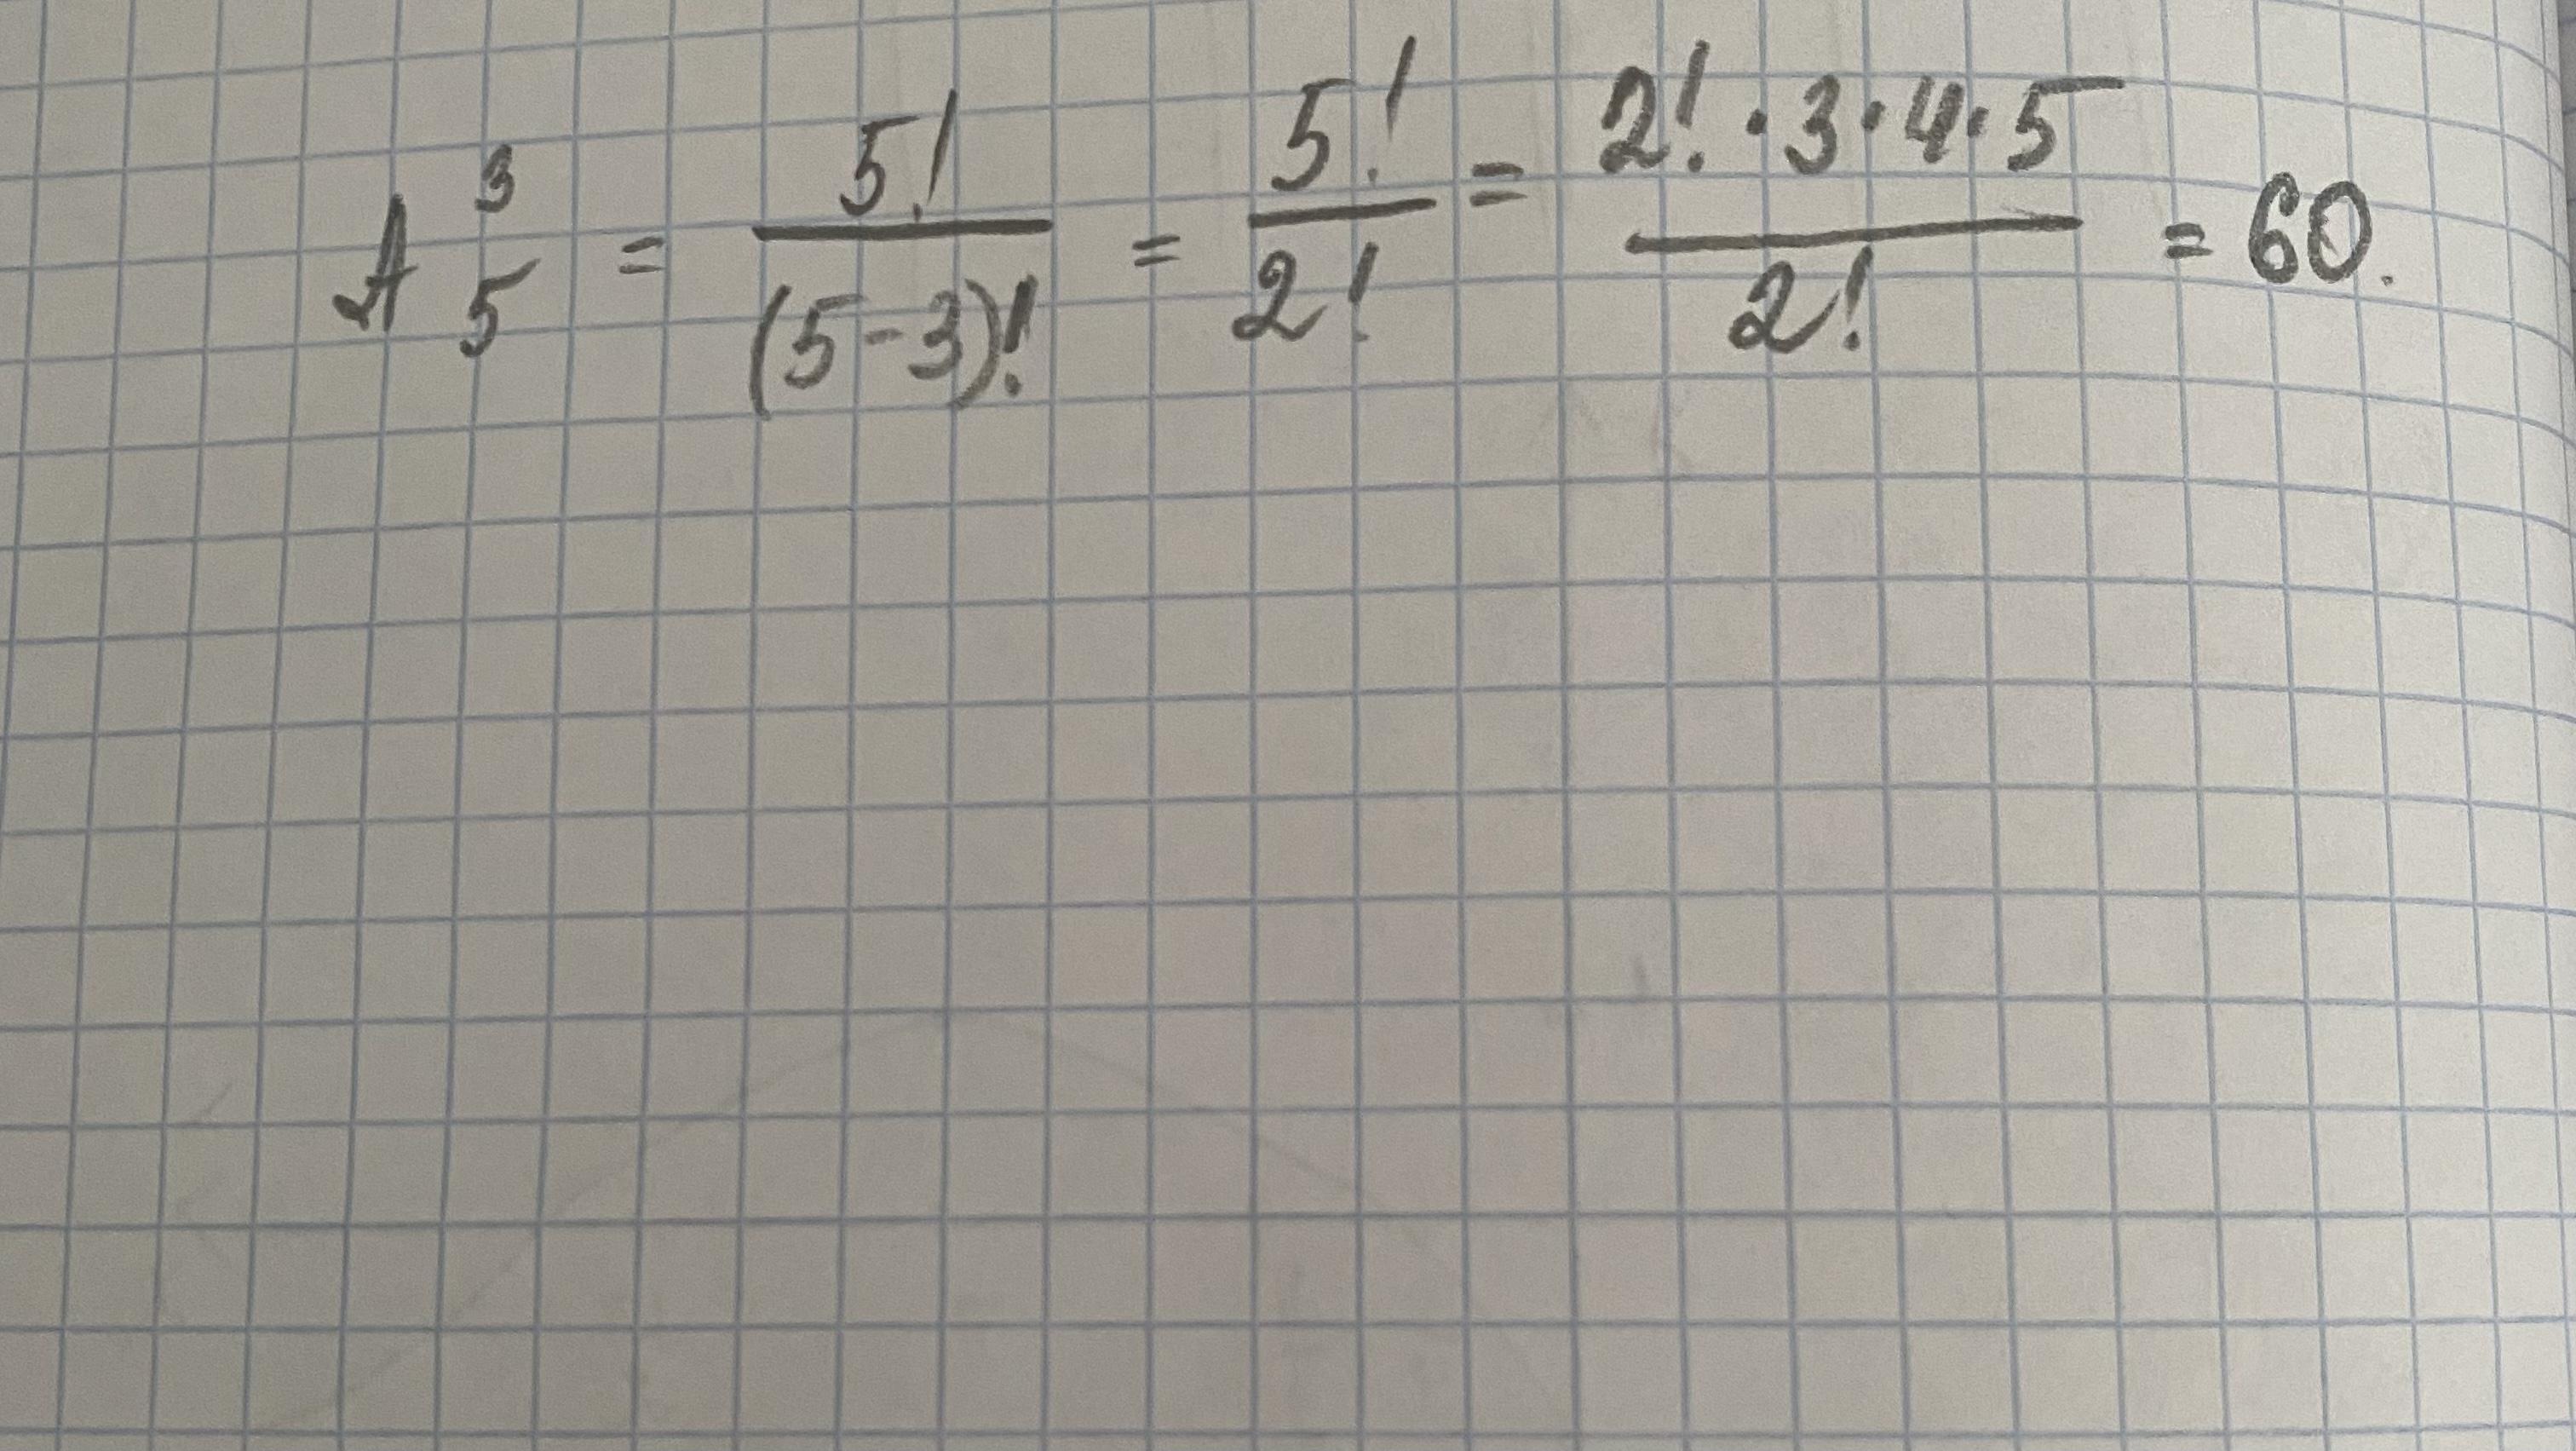 A₅³ = 5!/(5-3)! = 5!/2! = 2!·3·4·5/2! = 60.